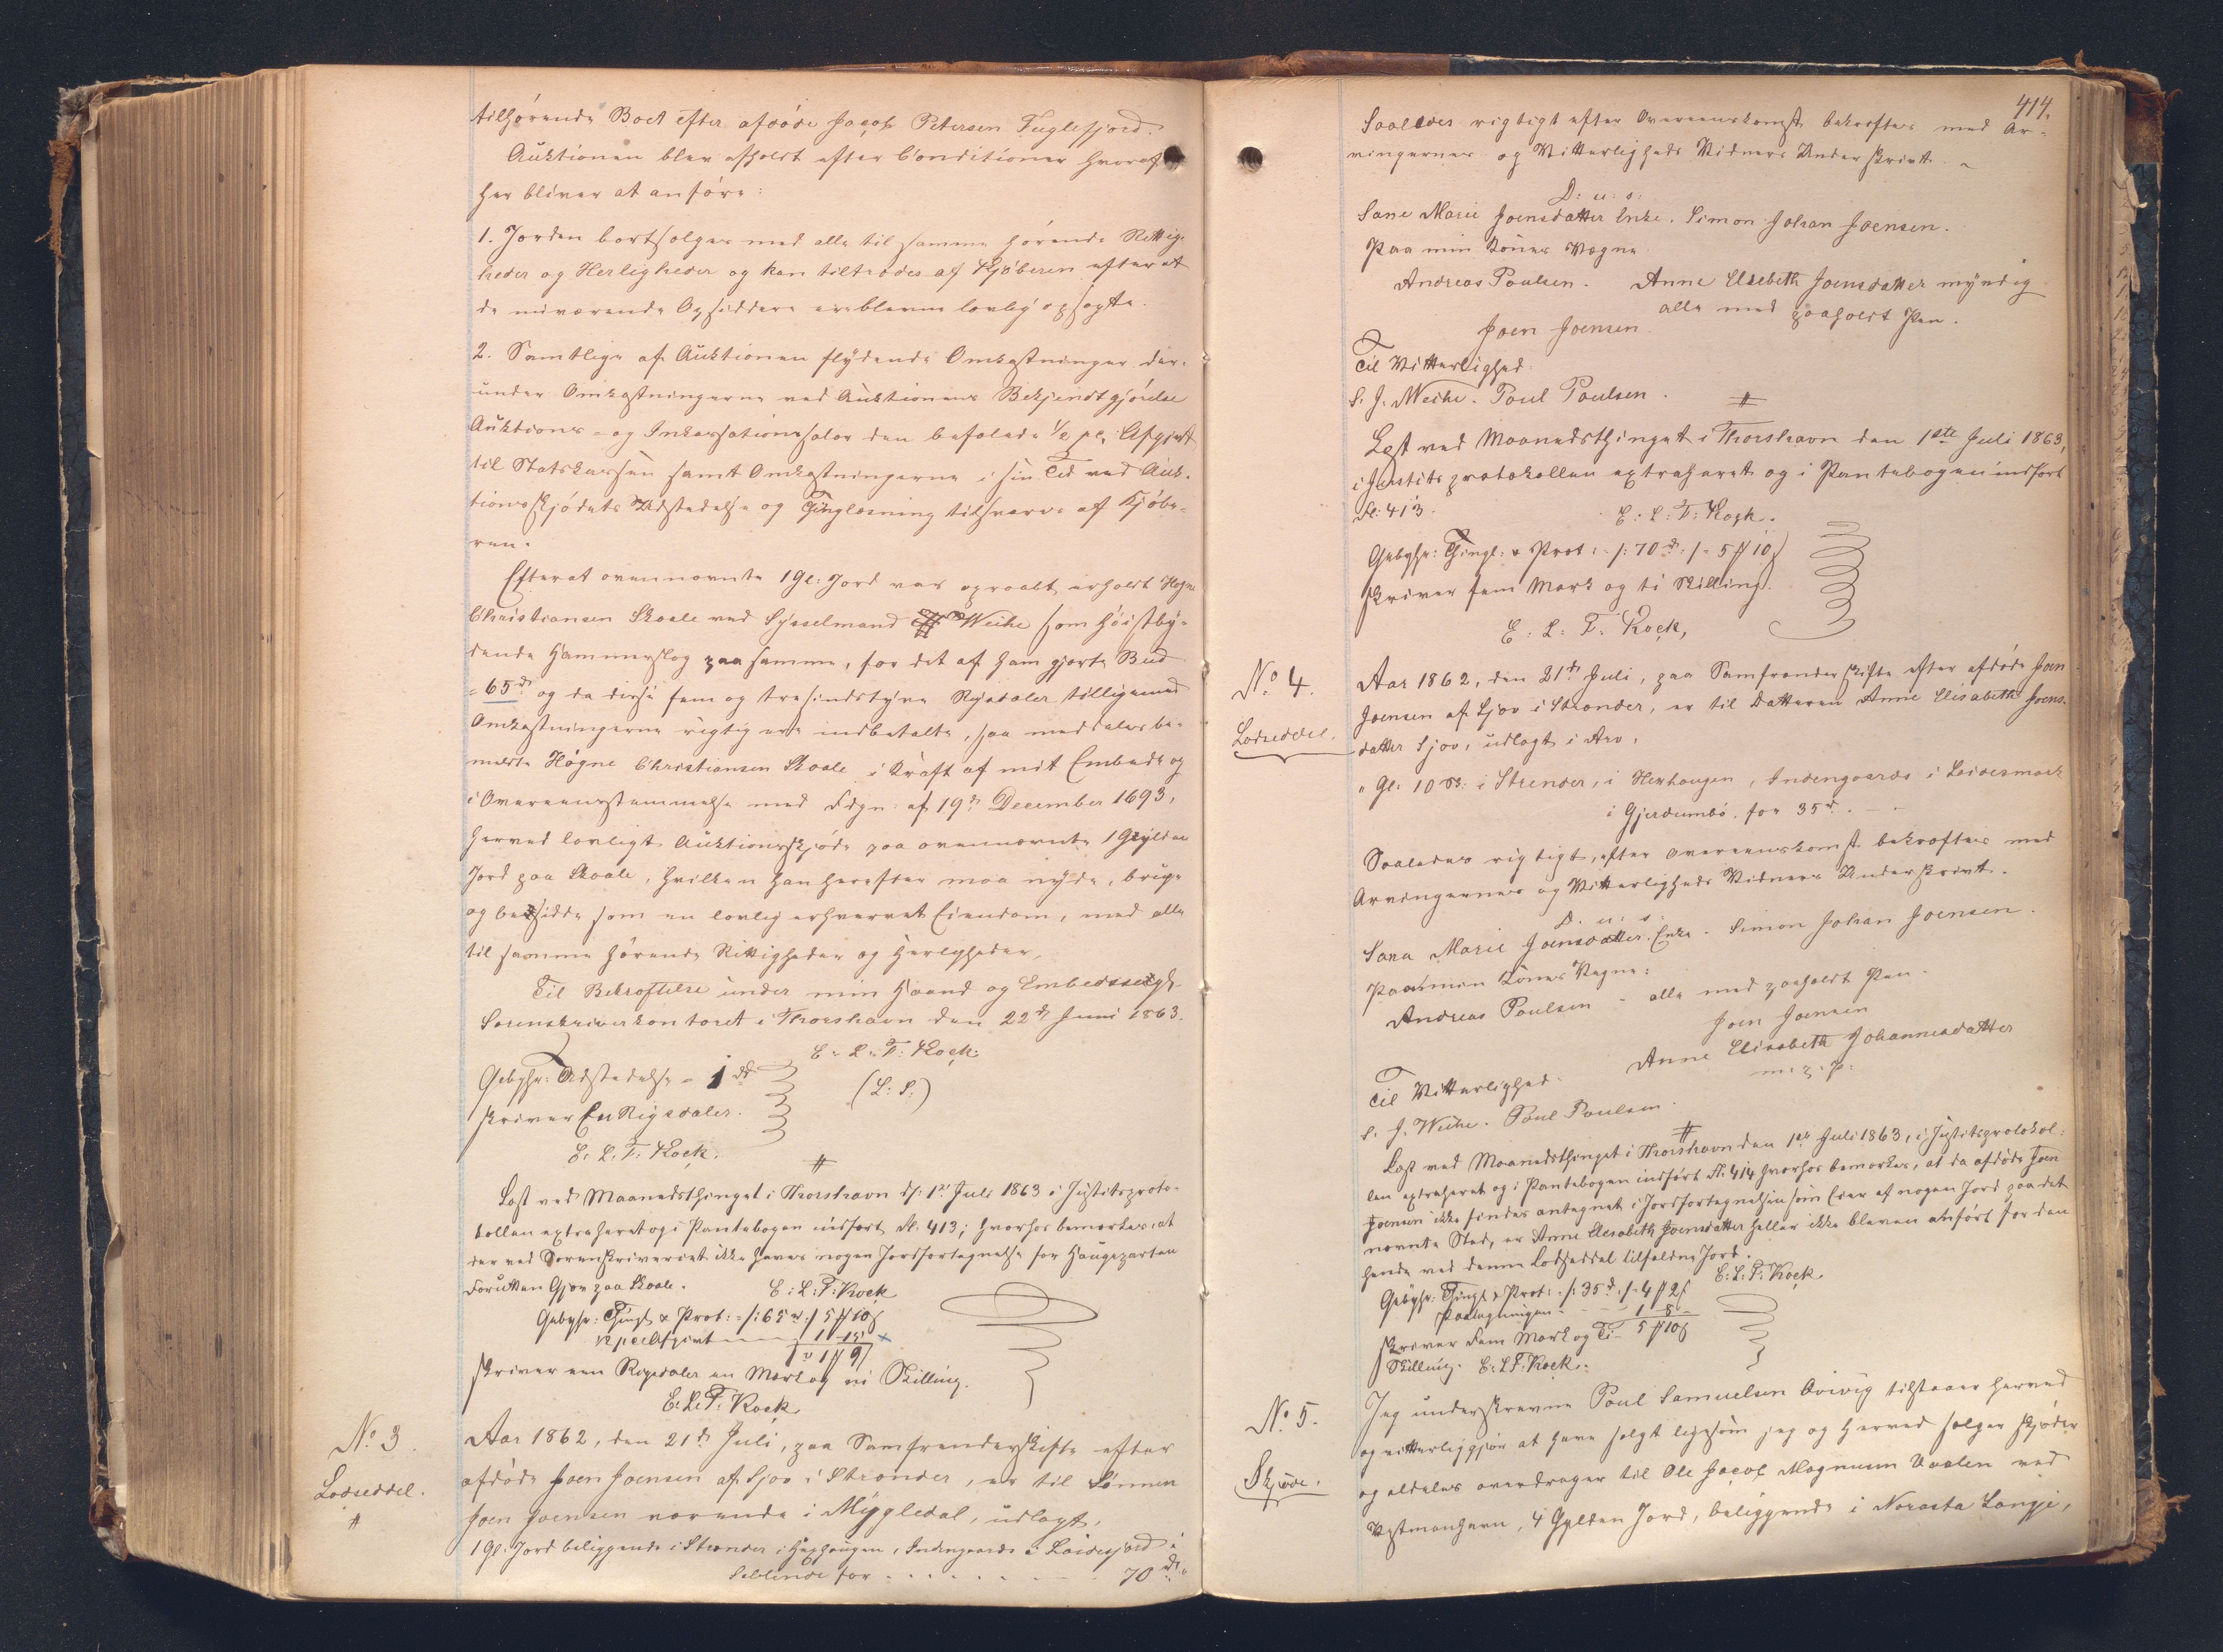 tilhørende Boet efter afdøde Jacob Petersen Fuglefjord.
Auktionen blev afholdt efter Conditioner hvoraf
her bliver at anføre:
1. Jorden bortsælges med alle til samme hørende Rettig-
heder og Herligheder og kan tiltrædes af Kjøberen efterat
de nuværende Opsiddere ere blevne lovlig opsagte.
2. Samtlige af Auktionen flydende Omkostninger der-
under Omkostningerne ved Auktionens Bekjendtgjørelse
Auktions- og Inkassationssalær den befalede ½ pC. Afgivt
til Statskassen samt Omkostningerne i sin Tid ved Auk-
tionsskjødets Udstedelse og Thinglæsning tilsvares af Kjøbe-
ren.
Efterat ovennævnte 1 Gl: Jord var opraabt erholdt Høgne
Christiansen Skaale ved Sysselmand Weihe som høistby-
dende Hammerslag paa samme, for det af ham gjorte Bud
- 65 rd og da disse fem og tresindstyve Rigsdaler tilligemed
Omkostningerne rigtig ere indbetalte, saa meddeles be-
meldte Høgne Christiansen Skaale i Kraft af mit Embede og
i Overeensstemmelse med Fdgn: af 19de December 1693,
herved lovligt Auktionsskjøde paa ovennævnte 1 Gylden
Jord paa Skaale, hvilken han herefter maa nyde, bruge
og besidde som en lovlig erhvervet Eiendom, med alle
til samme hørende Rettigheder og Herligheder.
Til Bekræftelse under min Haand og Embedssegl.
Sorenskriverkontoret i Thorshavn den 22de Juni 1863.
E: L: T: Kock:
(L: S:)
Gebyhr: Udstedelse = 1 rd
skriver En Rigsdaler.
E. L. T. Kock.
#
Læst ved Maanedsthinget i Thorshavn d. 1ste Juli 1863 i Justitsproto-
kollen extraheret og i Pantebogen indført Fl. 413; hvorhos bemærkes, at
der ved Sorenskriveriet ikke haves nogen Jordfortegnelse for Haugeparten
Foruttan Gjov paa Skaale.
E: L: T: Kock
Gebyhr: Thingl & Prot: - /: 65 rd :/ 5 # 10 ß
½ pC Afgivt - - - 1 - 15
1 rd 1 # 9 ß
skriver een Rigsdaler en Mark og ni Skilling.
E. L. T. Kock
No 3.
Lodseddel.
#
Aar 1862, den 21de Juli, paa Samfrændeskifte efter
afdøde Joen Joensen af Sjov i Strænder, er til Sønnen
Joen Joensen værende i Myggledal, udlagt,
1 Gl: Jord beliggende i Strænder i Heghaugen, Indengaards i Leidesjord i
for - - - - - - - 70 rd.
414.
Saaledes rigtigt efter Overeenskomst bekræftes med Ar-
vingernes og Vitterligheds Vidners Underskrivt.
D: u: s:
Sane Marie Joensdatter Enke. Simon Johan Joensen.
Paa min Kones Vegne
Andreas Poulsen. Anne Elsebeth Joensdatter myndig
alle med paaholdt Pen.
Joen Joensen
Til Vitterlighed.
S. J. Weihe. Poul Poulsen.
#
Læst ved Maanedsthinget i Thorshavn den 1ste Juli 1863,
i Justitsprotokollen extraheret og i Pantebogen indført
Fl: 413.
E: L: T: Kock.
Gebyhr: Thingl: & Prot: - /: 70 rd :/ - 5 # 10 ß
skriver fem Mark og ti Skilling.
E: L: T: Kock,
No 4.
Lodseddel.
Aar 1862, den 21de Juli, paa Samfrændeskifte efter afdøde Joen
Joensen af Sjov i Strænder, er til Datteren Anne Elisabeth Joens-
datter Sjov, udlagt i Arv,
" Gl: 10 i Strender, i Hexhaugen, Indengaards i Leidesmark
i Gjerdumbø for 35 rd. - -
Saaledes rigtigt, efter Overeenskomst bekræftes med
Arvingernes og Vitterligheds Vidners Underskrivt.
D. u: s:
Sana Marie Joensdatter. Enke. Simon Johan Joensen.
Paa min Kones Vegne:
Andreas Poulsen - alle med paaholdt Pen.
Joen Joensen
Anne Elisabeth Johannesdatter
m: p: P:
Til Vitterlighed.
S. J. Weihe. Poul Poulsen.
#
Læst ved Maanedsthinget i Thorshavn den 1ste Juli 1863, i Justitsprotokol-
len extraheret og i Pantebogen indført Fl. 414 hvorhos bemærkes, at da afdøde Joen
Joensen ikke findes antegnet i Jordfortegnelsen som Eier af nogen Jord paa det
nævnte Sted, er Anne Elisabeth Joensdatter heller ikke bleven anført for den
hende ved denne Lodseddel tilfaldne Jord.
E: L: T: Kock
Gebyhr: Thingl & Prot: - /: 35 rd :/ - 4 # 2 ß
Paategningen - - - 1 - 8 -
5 # 10 ß
skriver Fem Mark og Ti
Skilling. E: L. T. Kock.
No 5.
Skjøde.
Jeg underskrevne Poul Samuelsen Qvivig tilstaaer herved
og vitterliggjør at have solgt ligesom jeg og herved sælger skjøder
og aldeles overdrager til Ole Jacob Magnusen Vaalen ved
Vestmanhavn, 4 Gylden Jord, beliggende i Norasta Langje,